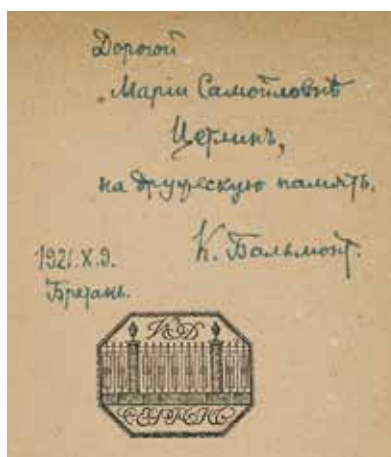 Дорогой
Марiи Самойловнѣ
Цетлинъ,
на дружескую память.
К. Бальмонт.
1921.X.9.
Бретань.